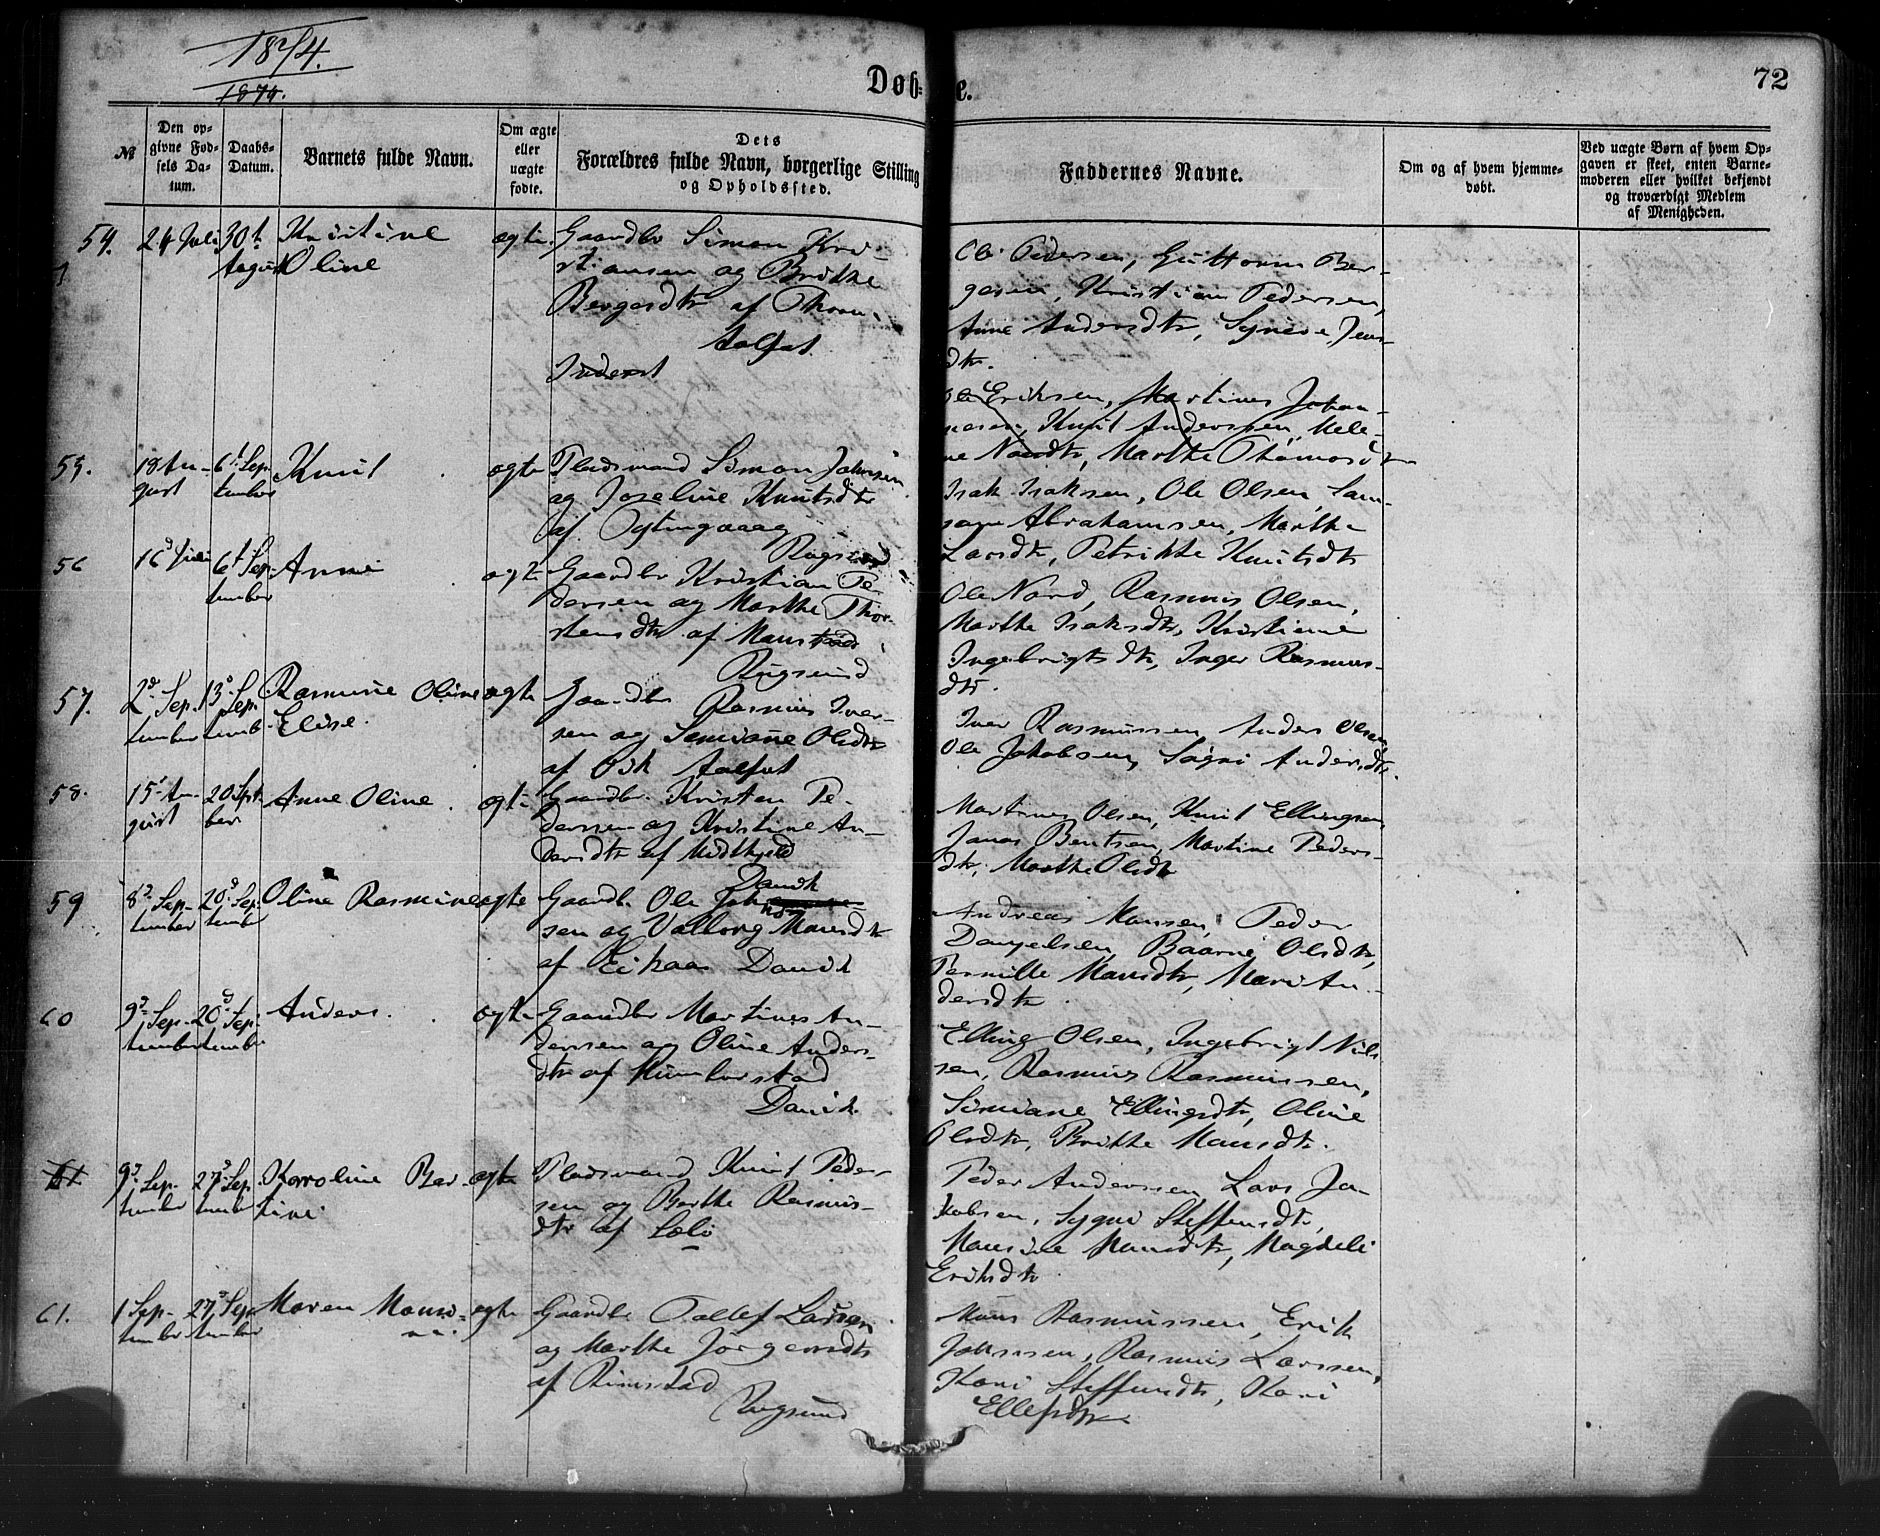 1874.
1874.
Døb-
e.
72
№
Den op-
givne Fød-
sels Da-
tum.
Daabs-
Datum.
Barnets fulde Navn.
Om ægte
eller
uægte
fødte.
Dets
Forældres fulde Navn, borgerlige Stilling
og Opholdssted.
Faddernes Navne.
Om og af hvem hjemme-
døbt.
Ved uægte Børn af hvem Op-
gaven er skeet, enten Barne-
moderen eller hvilket bekjendt
og troværdigt Medlem
af Menigheden.
54.
Juli
30t
August
Kristine
Oline
ægte.
Gaardbr Simon Kri-
stiansen og Brithe
Bergesdtr af
Aalfot
Ole Pedersen, Guttorm Ber-
gesen, Kristian Pedersen,
Anne Andersdtr, Synève Jens-
dtr.
Ole Eriksen, Martines Johan-
nesen, Knut Anderssen, Mele-
ne Marthe
55.
18 Au-
gust
6t Sep-
tember
Knut
ægte
Pladsmand Simon Johnsen
og Joseline Knutsdtr
af
Rugsund
Isak Isaksen, Ole Olsen, Sam-
son Abrahamsen, Marthe
Larsdtr, Petrikke Knutsdtr
56
16d Juli
6t Sep-
tember
Anne
ægte
Gaardbr Kristian Pe-
dersen og Marthe Thor-
stensdtr af
Rugsund
Ole Nord, Rasmus Olsen,
Marthe Isaksdtr, Kristiane
Ingebrigtsdtr, Inger Rasmus-
dtr.
57.
2d Sep-
tember
13d Sep-
temb.
Rasmine Oline
Elise.
ægte
Gaardbr Rasmus Iver-
sen og Semiane Olsdtr
af Aalfot
Iver Rasmussen, Anders Olsen,
Ole Jakobsen, Andersdtr.
58.
15 Au-
gust
20 Sept-
ber
Anne Oline.
ægte
Gaardbr. Kristen Pe-
dersen og Kristine An-
dersdtr af Midthjeld
Davik
Martines Olsen, Knut Ellingsen,
Jonas Bentsen, Martine Peders-
dtr, Marthe Olsdtr
59
8d Sep-
tember
20d Sep-
temb
Oline Rasmine
ægte
Gaardb. Ole
sen og Valborg Monsdtr
af Eikaas Davik
Andreas Monsen, Peder
Danjelsen, Olsdtr,
Pernille Monsdtr, Mari An-
dersdtr.
60
9d Sep-
tember
20d Sep-
tember
Anders.
ægte
Gaardbr Martines An-
derssen og Oline Anders-
dtr af Humborstad
Davik
Elling Olsen, Ingebrigt Nils-
sen, Rasmus Rasmussen,
Simiane Ellingsdtr, Oline
Olsdtr, Brithe Monsdtr.
61.
9d Sep-
tember
27d Sep-
temb
Karoline Ber-
tine
ægte
Pladsmand Knut Peder-
sen og Berthe Rasmus-
dtr af
Peder Anderssen, Lars Ja-
kobsen, Sygni Steffensdtr,
Monsdtr, Magdeli
Eriksdtr
61.
1 Sep-
tember
27d Sep-
tember
Maren
ægte
Gaardbr Tollef Larsen
og Marthe Jørgensdtr
af Rimstad
Rugsund
Mons Rasmussen, Erik
Johnsen, Rasmus Larssen,
Kari Steffensdtr, Kari
Ellefsdtr